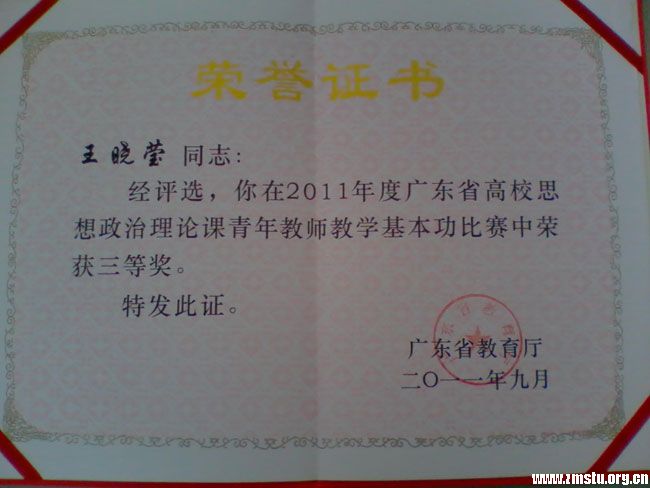 荣誉证书
王晓莹 同志：
经评选，你在2011年度广东省高校思
想政治理论课青年教师教学基本功比赛中荣
获三等奖。
特发此证。
广东省教育厅
二〇一一年九月
www.zmstu.org.cn